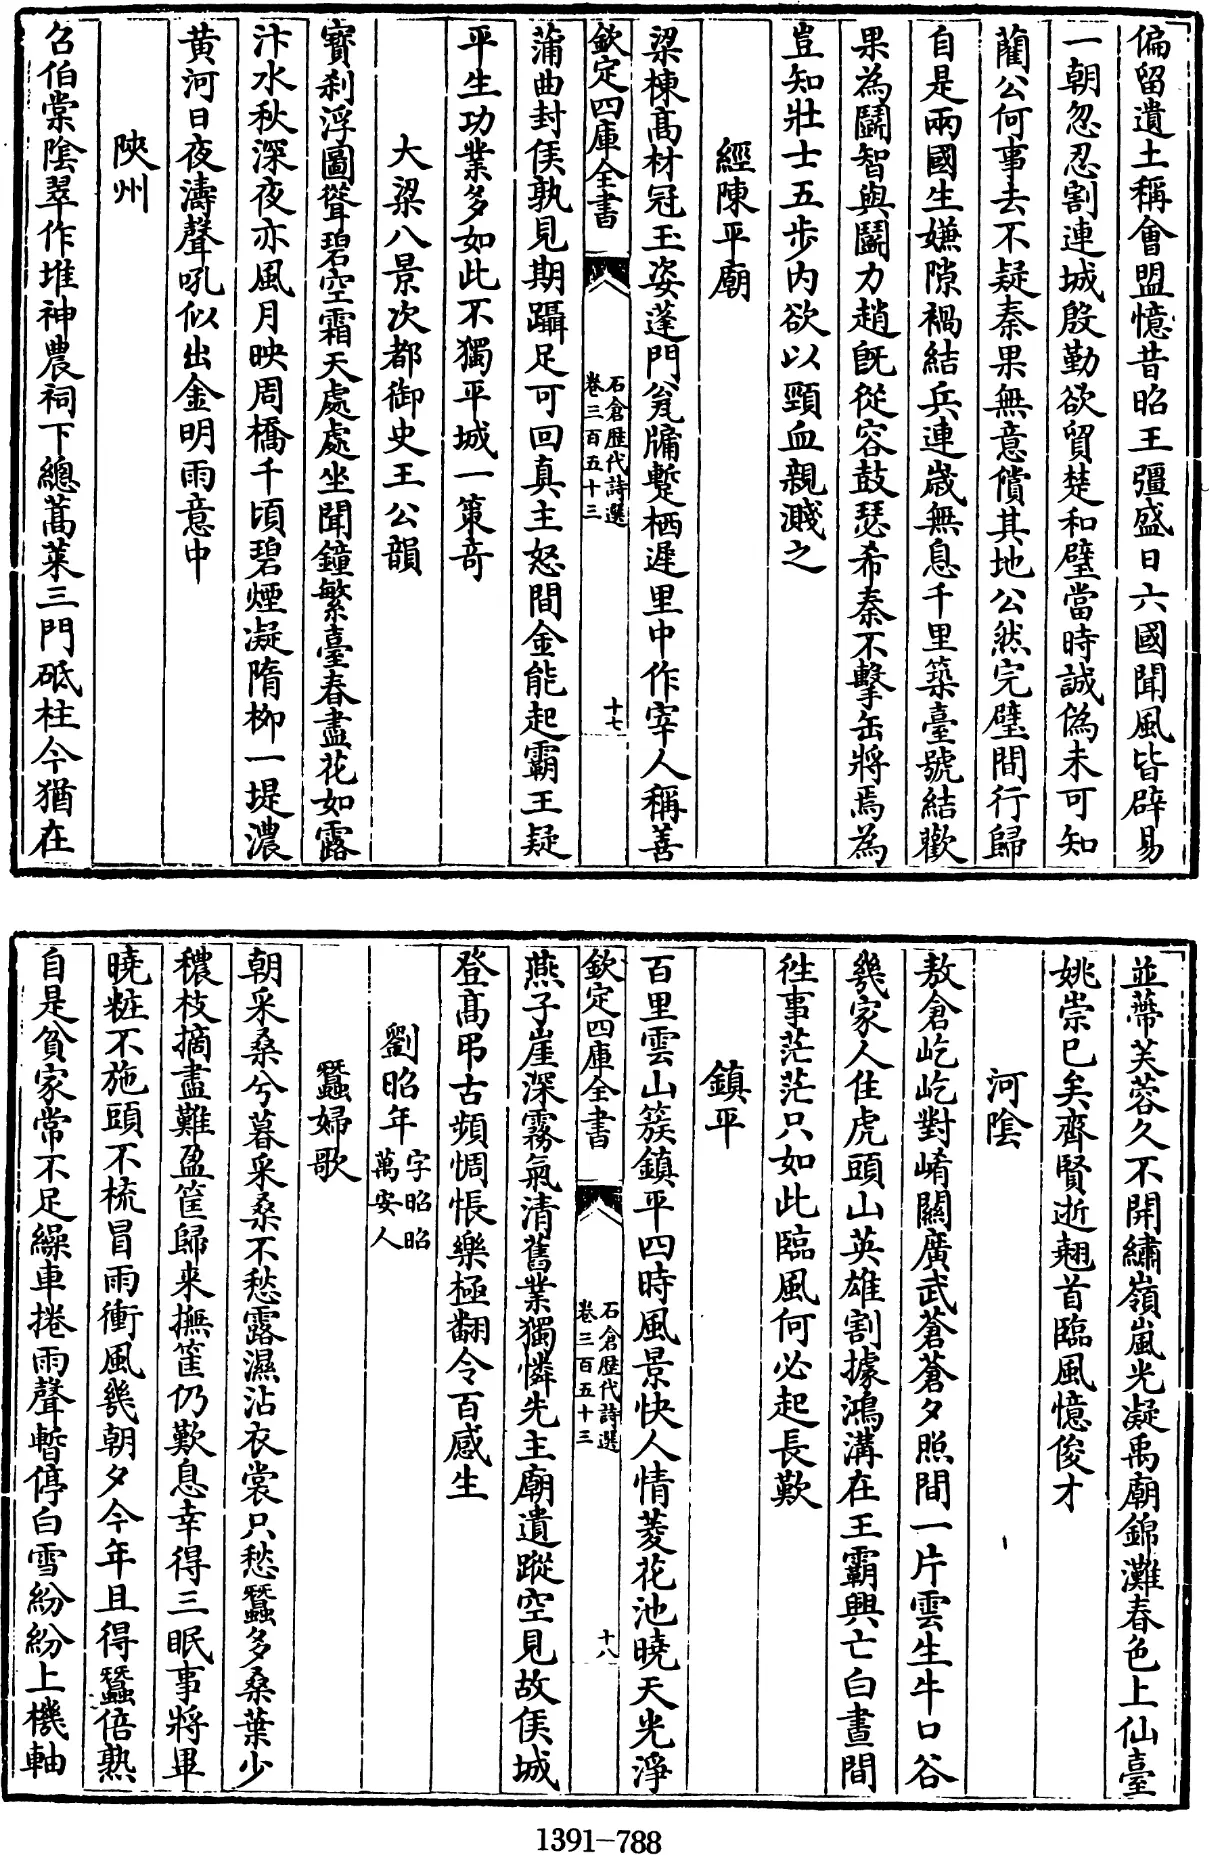 偏留遺土稱會盟憶昔昭王彊盛日六國聞風皆辟易
一朝忽忍割連城殷勤欲貿楚和璧當時誠偽未可知
藺公何事去不疑秦果無意償其地公然完璧間行歸
自是兩國生嫌隙禍結兵連歲無息千里築臺號結歡
果為鬭智與鬭力趙旣從容鼓瑟希秦不擊缶將焉為
豈知壯士五步內欲以頸血親濺之
經陳平廟
梁棟高材冠玉姿蓬門瓮牖蹔栖遲里中作宰人稱善
欽定四庫全書
石倉歷代詩選
卷三百五十三
十七
蒲曲封侯孰見期躡足可回真主怒間金能起霸王疑
平生功業多如此不獨平城一策奇
大梁八景次都御史王公韻
寶刹浮圖聳碧空霜天處處坐聞鐘繁臺春盡花如露
汴水秋深夜亦風月映周橋千頃碧煙凝隋柳一堤濃
黃河日夜濤聲吼似出金明雨意中
陝州
召伯棠陰翠作堆神農祠下總蒿萊三門砥柱今猶在
並蔕芙蓉久不開繡嶺嵐光凝禹廟錦灘春色上仙臺
姚崇已矣齊賢逝翹首臨風憶俊才
河陰
敖倉屹屹對崤關廣武蒼蒼夕照間一片雲生牛口谷
幾家人住虎頭山英雄割據鴻溝在王霸興亡白晝間
徃事茫茫只如此臨風何必起長歎
鎮平
百里雲山簇鎮平四時風景快人情菱花池曉天光淨
欽定四庫全書
石倉歷代詩選
卷三百五十三
十八
燕子崖深霧氣清舊業獨憐先主廟遺蹤空見故侯城
登高弔古頻惆悵樂極翻令百感生
劉昭年 字昭昭 萬安人
蠶婦歌
朝采桑兮暮采桑不愁露濕沾衣裳只愁蠶多桑葉少
穠枝摘盡難盈筐歸來撫筐仍歎息幸得三眠事將畢
曉粧不施頭不梳冒雨衝風幾朝夕今年且得蠶倍熟
自是貧家常不足繰車捲雨聲暫停白雪紛紛上機軸
1391-788